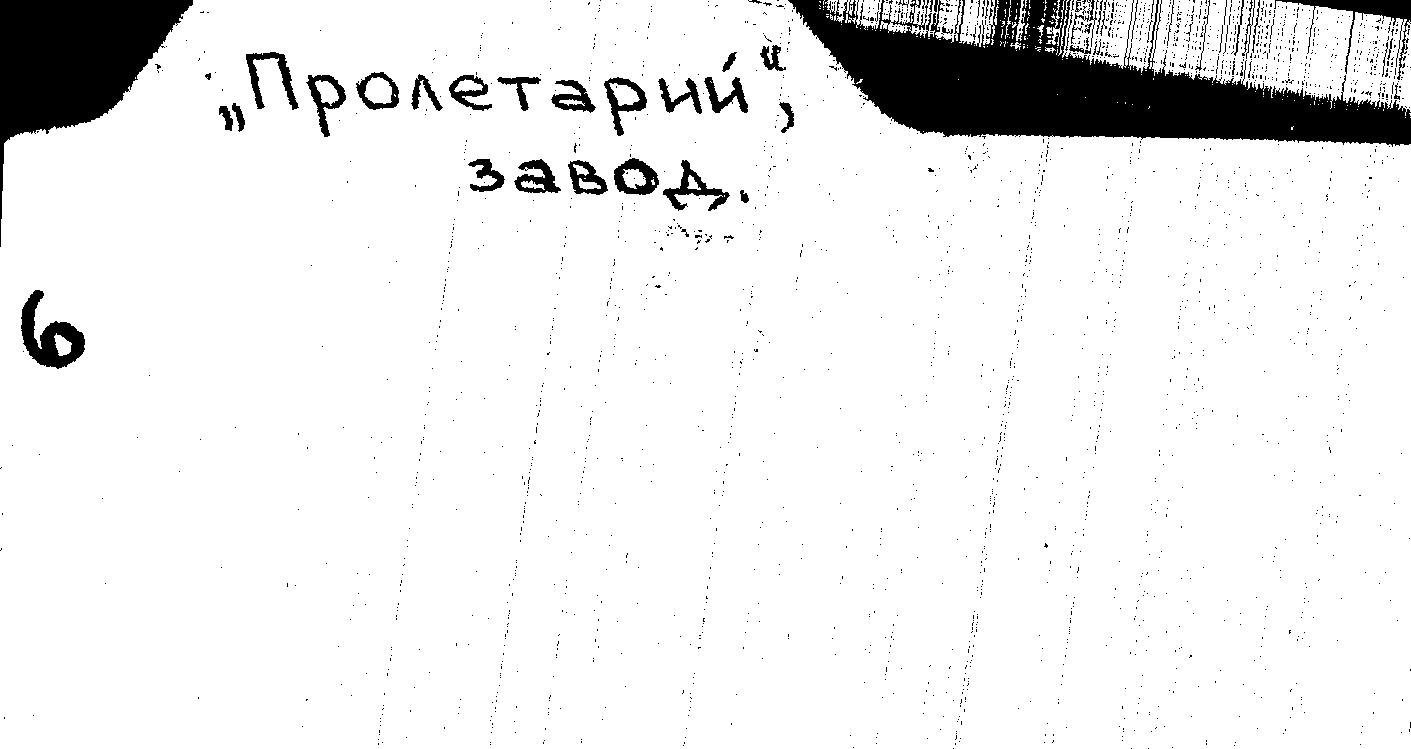 „Пролетарий“,
завод.
6